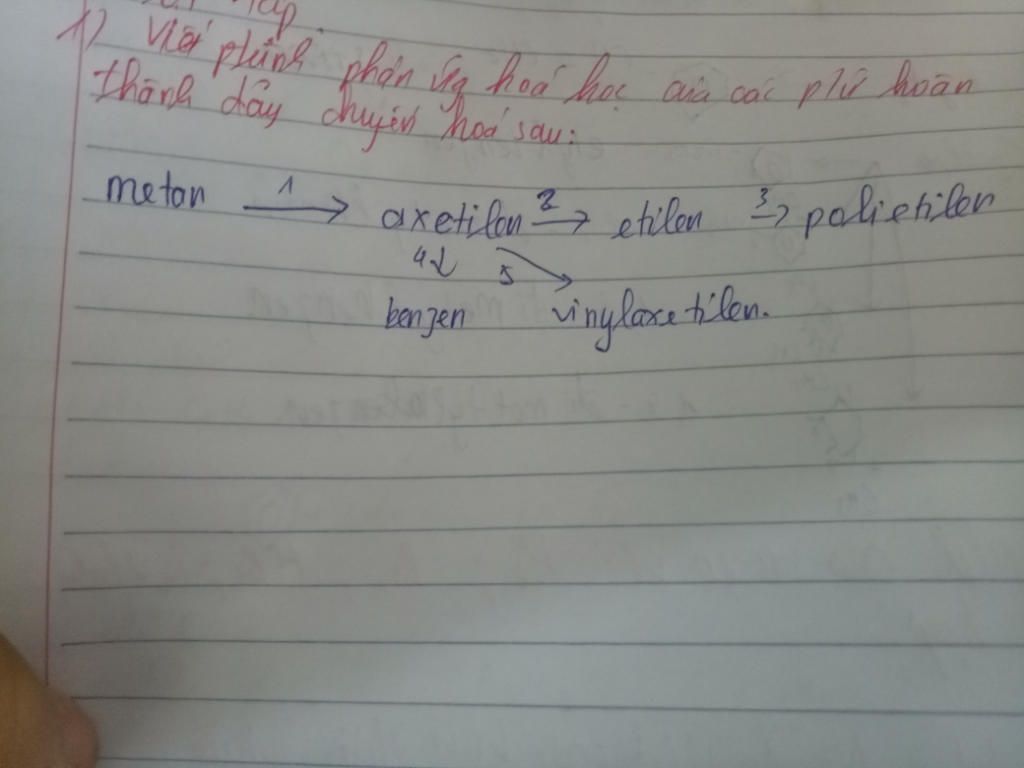 tập.
1) Viết ptrình phản ứng hoá học của các pứ hoàn
thành dãy chuyển hoá sau:
metan 1→ axetilen 2→ etilen 3→ polietilen
4↓ 5↘
benzen vinylaxetilen.